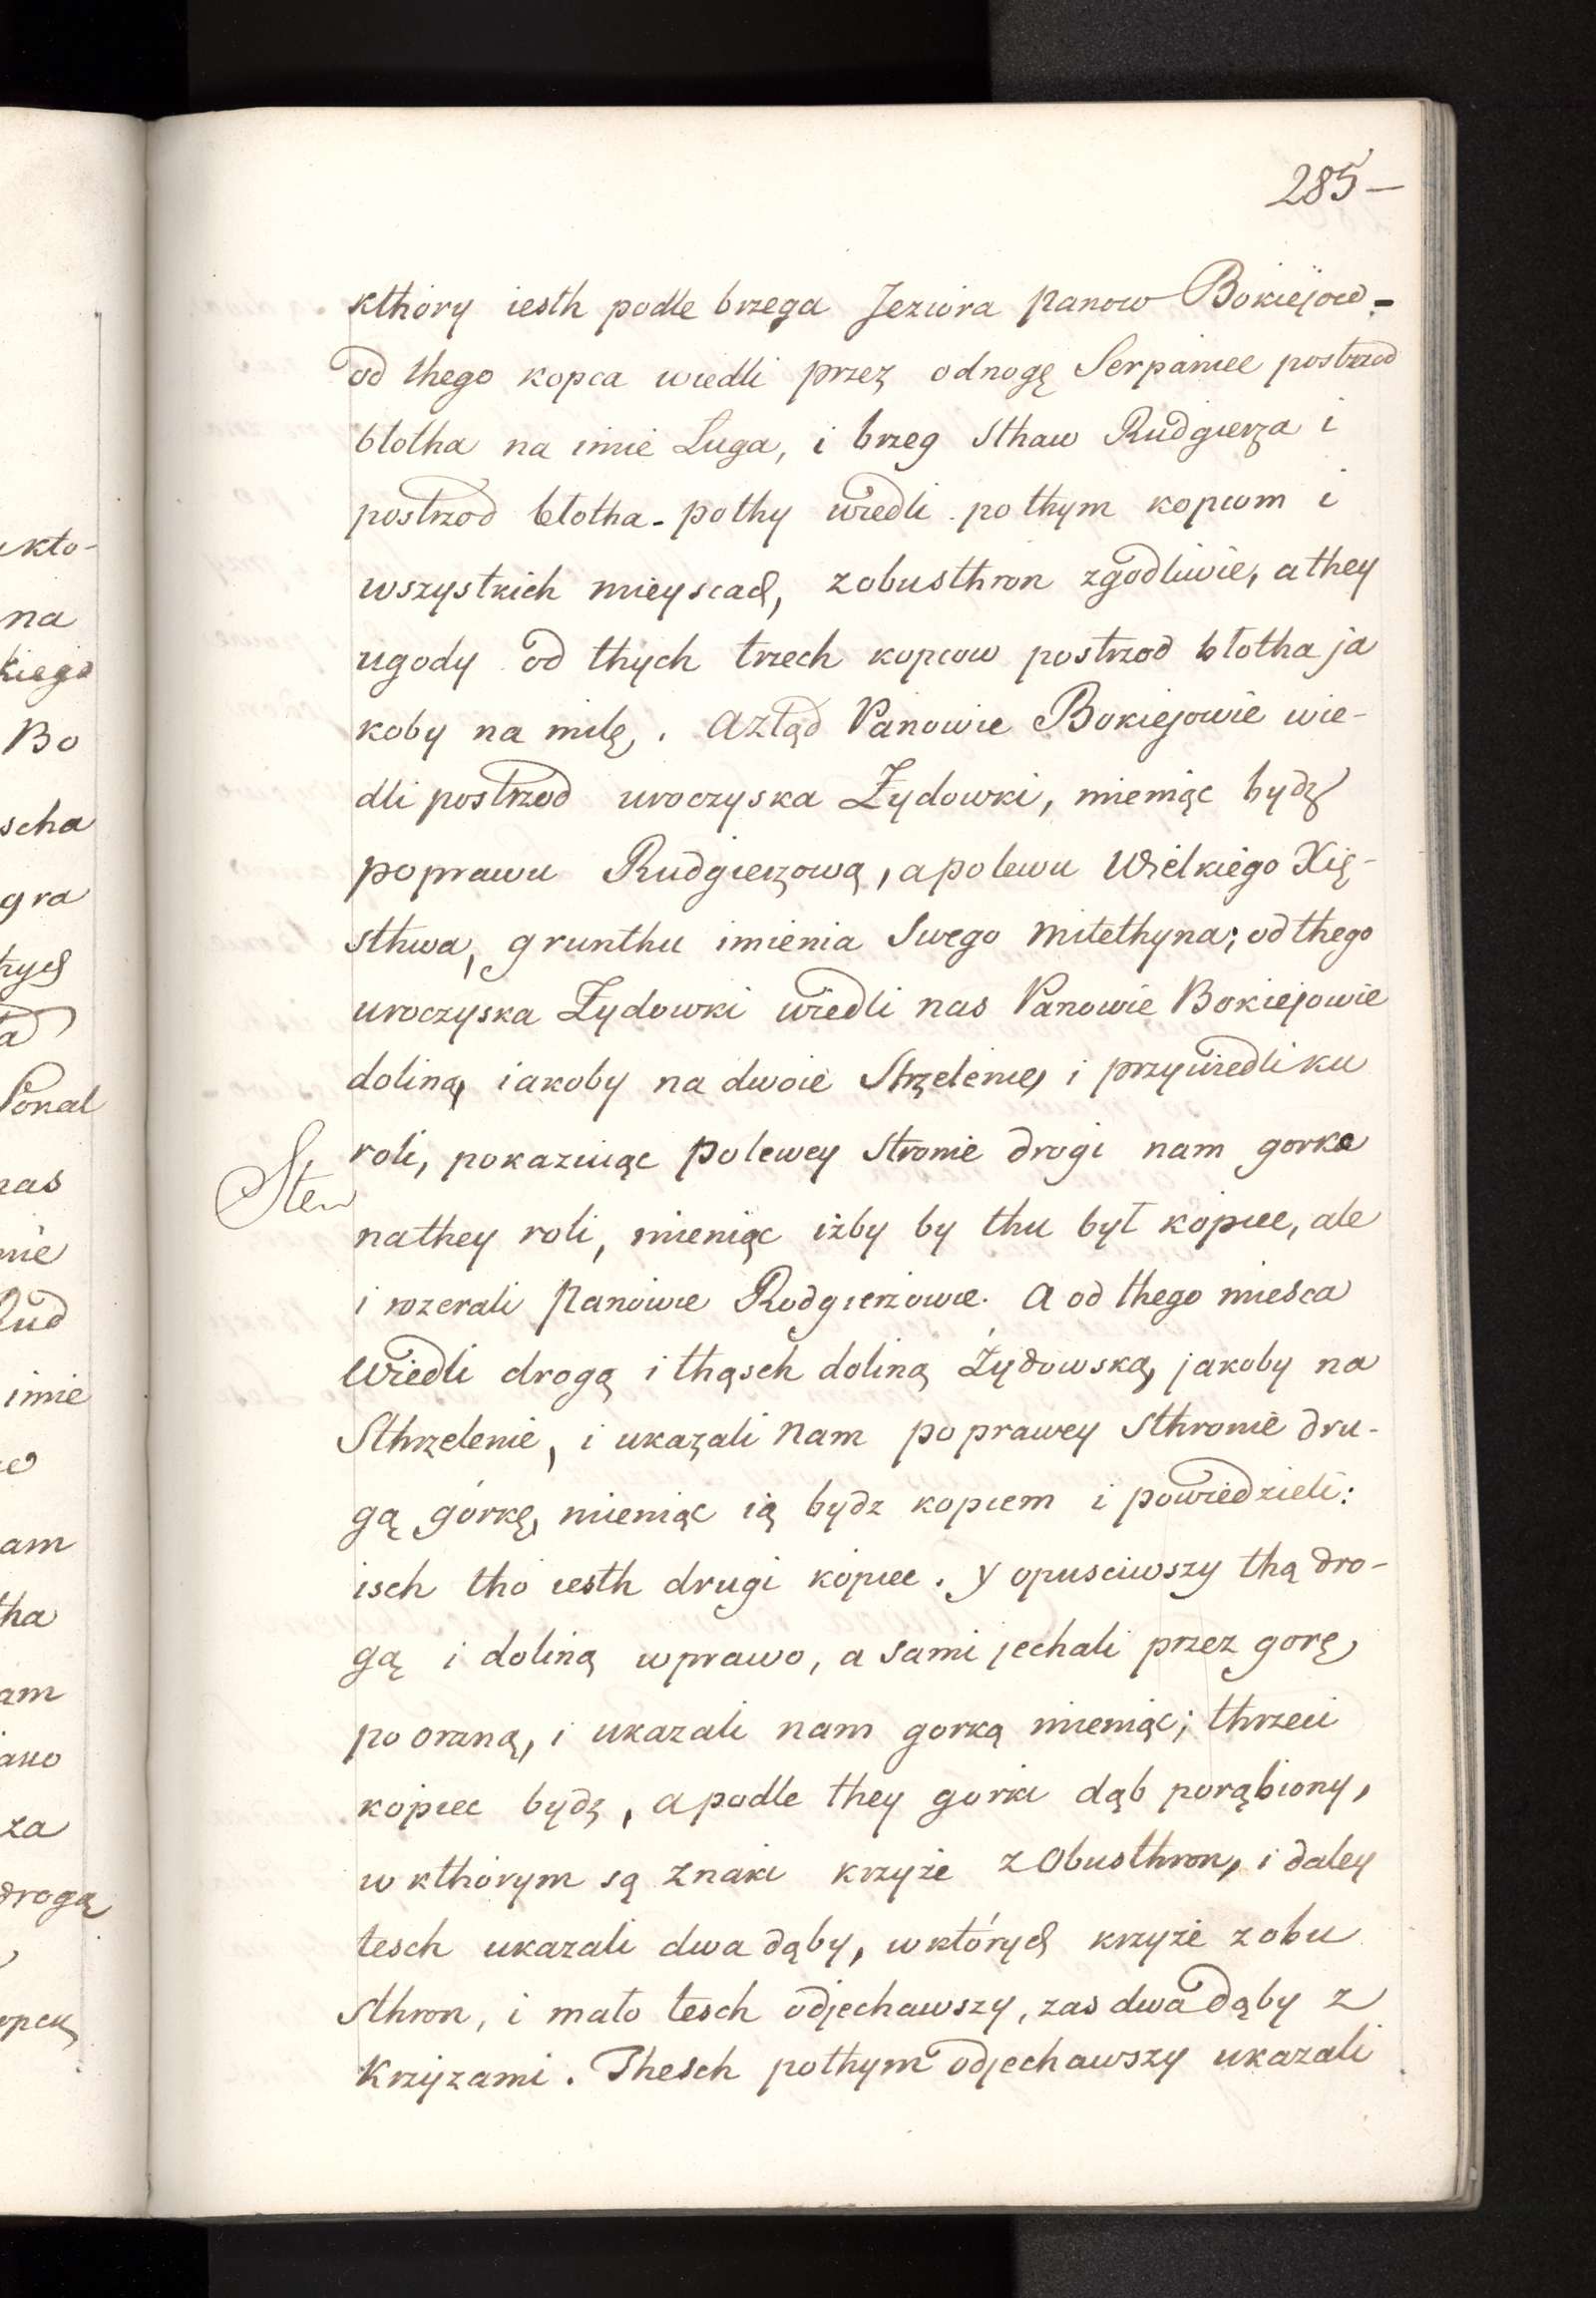 285-
kthóry iesth podle brzega Jezióra panow Bokiejow-
od thego kopca wiedli przez odnogę Serpaniee postrzod
błotha na imie Luga, i brzeg Sthaw Rudgierza i
postrzod błotha - pothy wiedli pothym kopcom i
wszystkich mieyscach, zobusthron zgodliwie, athey
ugody od thych trzech kopcow postrzod błotha ja
koby na milę, . A ztąd Panowie Bokiejowie wie-
dli postrzod uroczyska Żydowki, mieniąc bydz
poprawu Rudgierzową, apolewu Wielkiego Xię-
sthwa, grunthu imienia Swego Mitethyna; od thego
uroczyska Żydowki wiedli nas Panowie Bokiejowie
doliną iakoby na dwoie Strzelenie, i przywiedli ku
roli, pokazuiąc polewey Stronie drogi nam gorka
Sten
nathey roli, mieniąc iżby by thu był kopiec, ale
i rozerali Panowie Rodgierzowie. A od thego miesca
Wiedli drogą i thąsch doliną Żydowską, jakoby na
Sthrzelenie, i ukazali nam poprawey Sthronie dru-
gą górkę, mieniąc ią bydz kopcem i powiedzieli:
isch tho iesth drugi kopiec. y opusciwszy thą dro-
gą i doliną wprawo, a sami jechali przez gorę,
po oraną, i ukazali nam gorką mieniąc; thrzeci
kopiec bydz, a podle they gorki dąb porąbiony,
w kthórym są znaki krzyże z Obusthron, i daley
tesch ukazali dwa dąby, w których krzyże zobu
Sthron, i mało tesch odjechawszy, zas dwa dąby z
Krzyzami. Thesch pothym odjechawszy ukazali